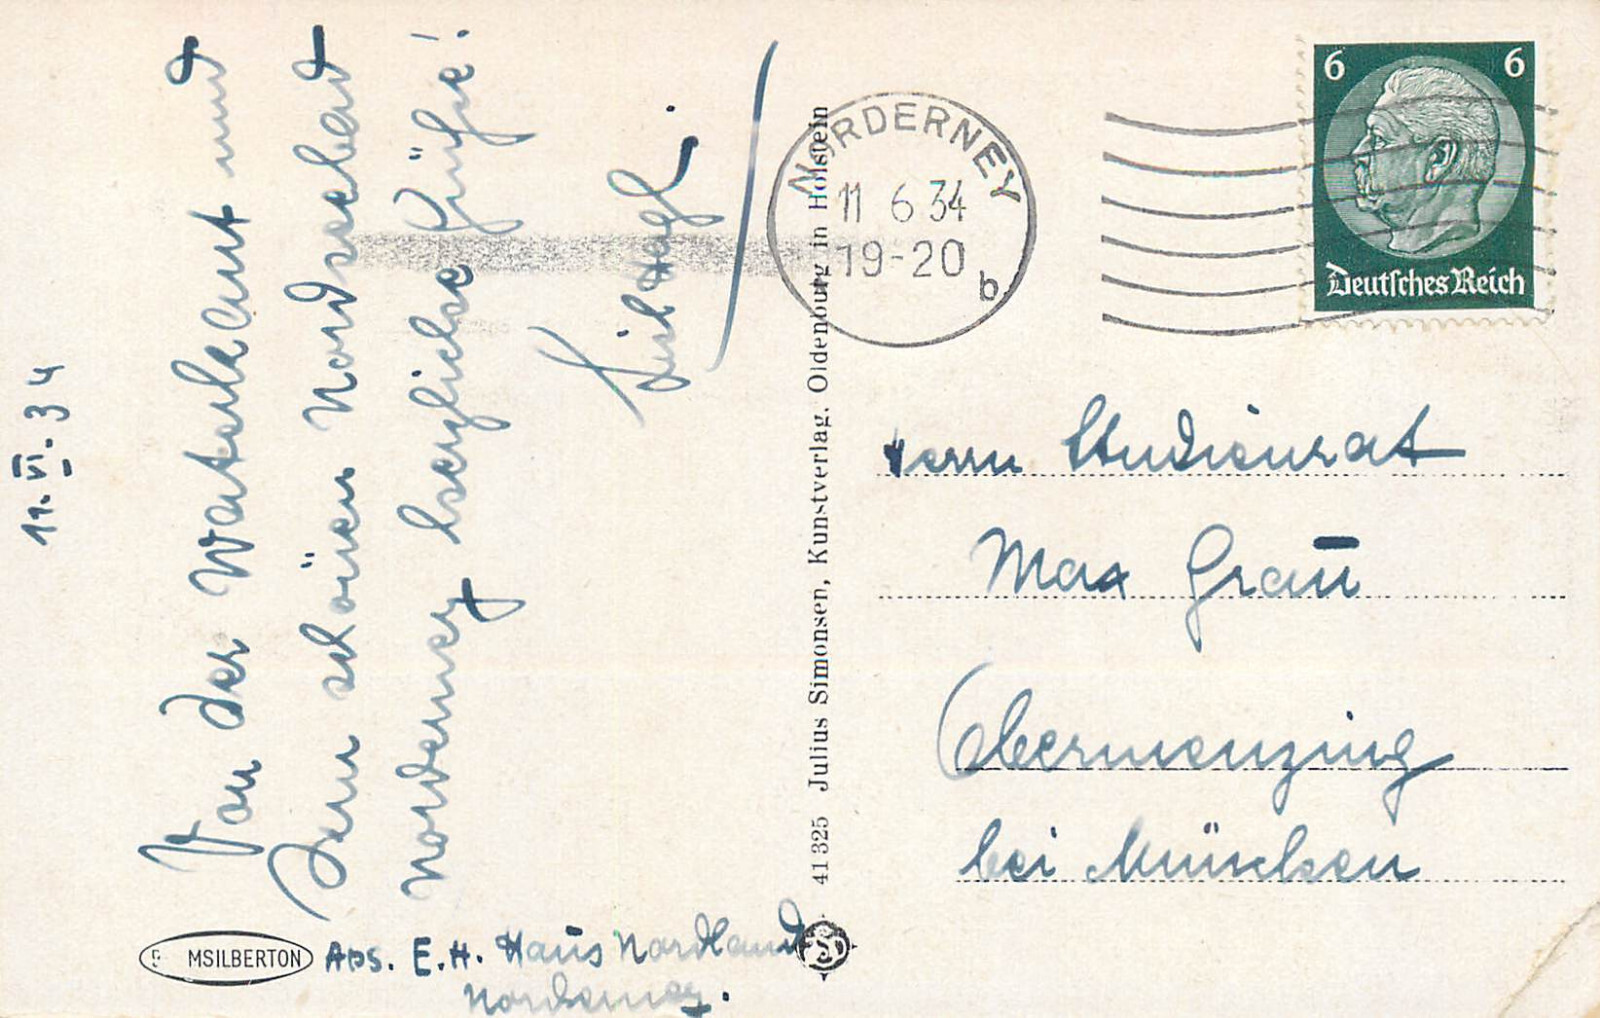 11.VI.34
Von der Waterkant und
dem schönen Nordseebad
Norderney herzliche Grüße!
NORDERNEY
11 6 34
19-20
b
6 6
Deutsches Reich
Herrn Studienrat
Max Graū
Obermenzing
bei München
41325 Julius Simonsen, Kunstverlag, Oldenburg in Holstein
MSILBERTON
Abs. E.H. Haus Nordland
Norderney.